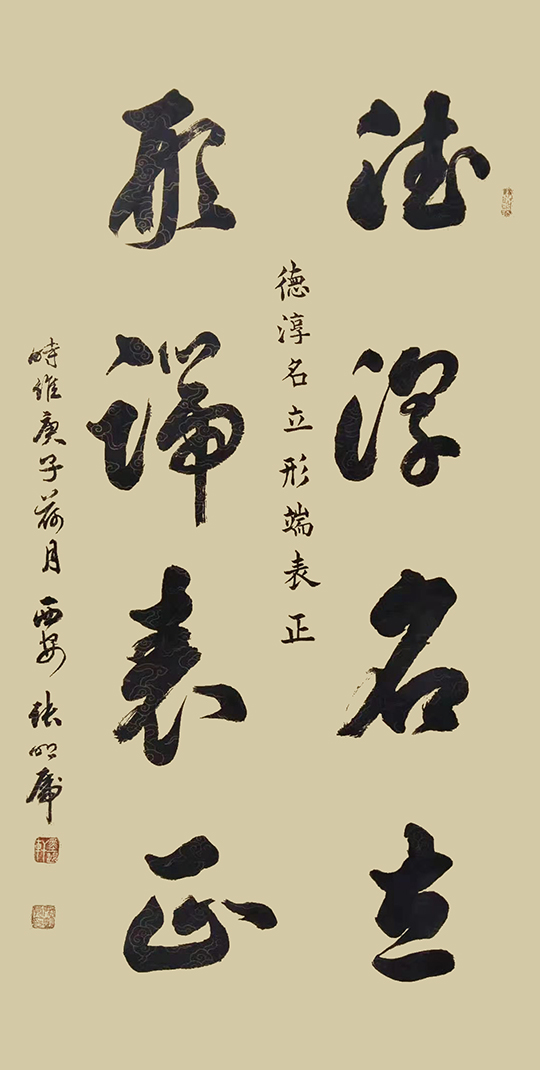 德淳名立
德淳名立形端表正
形端表正
時維庚子荷月 西安 張